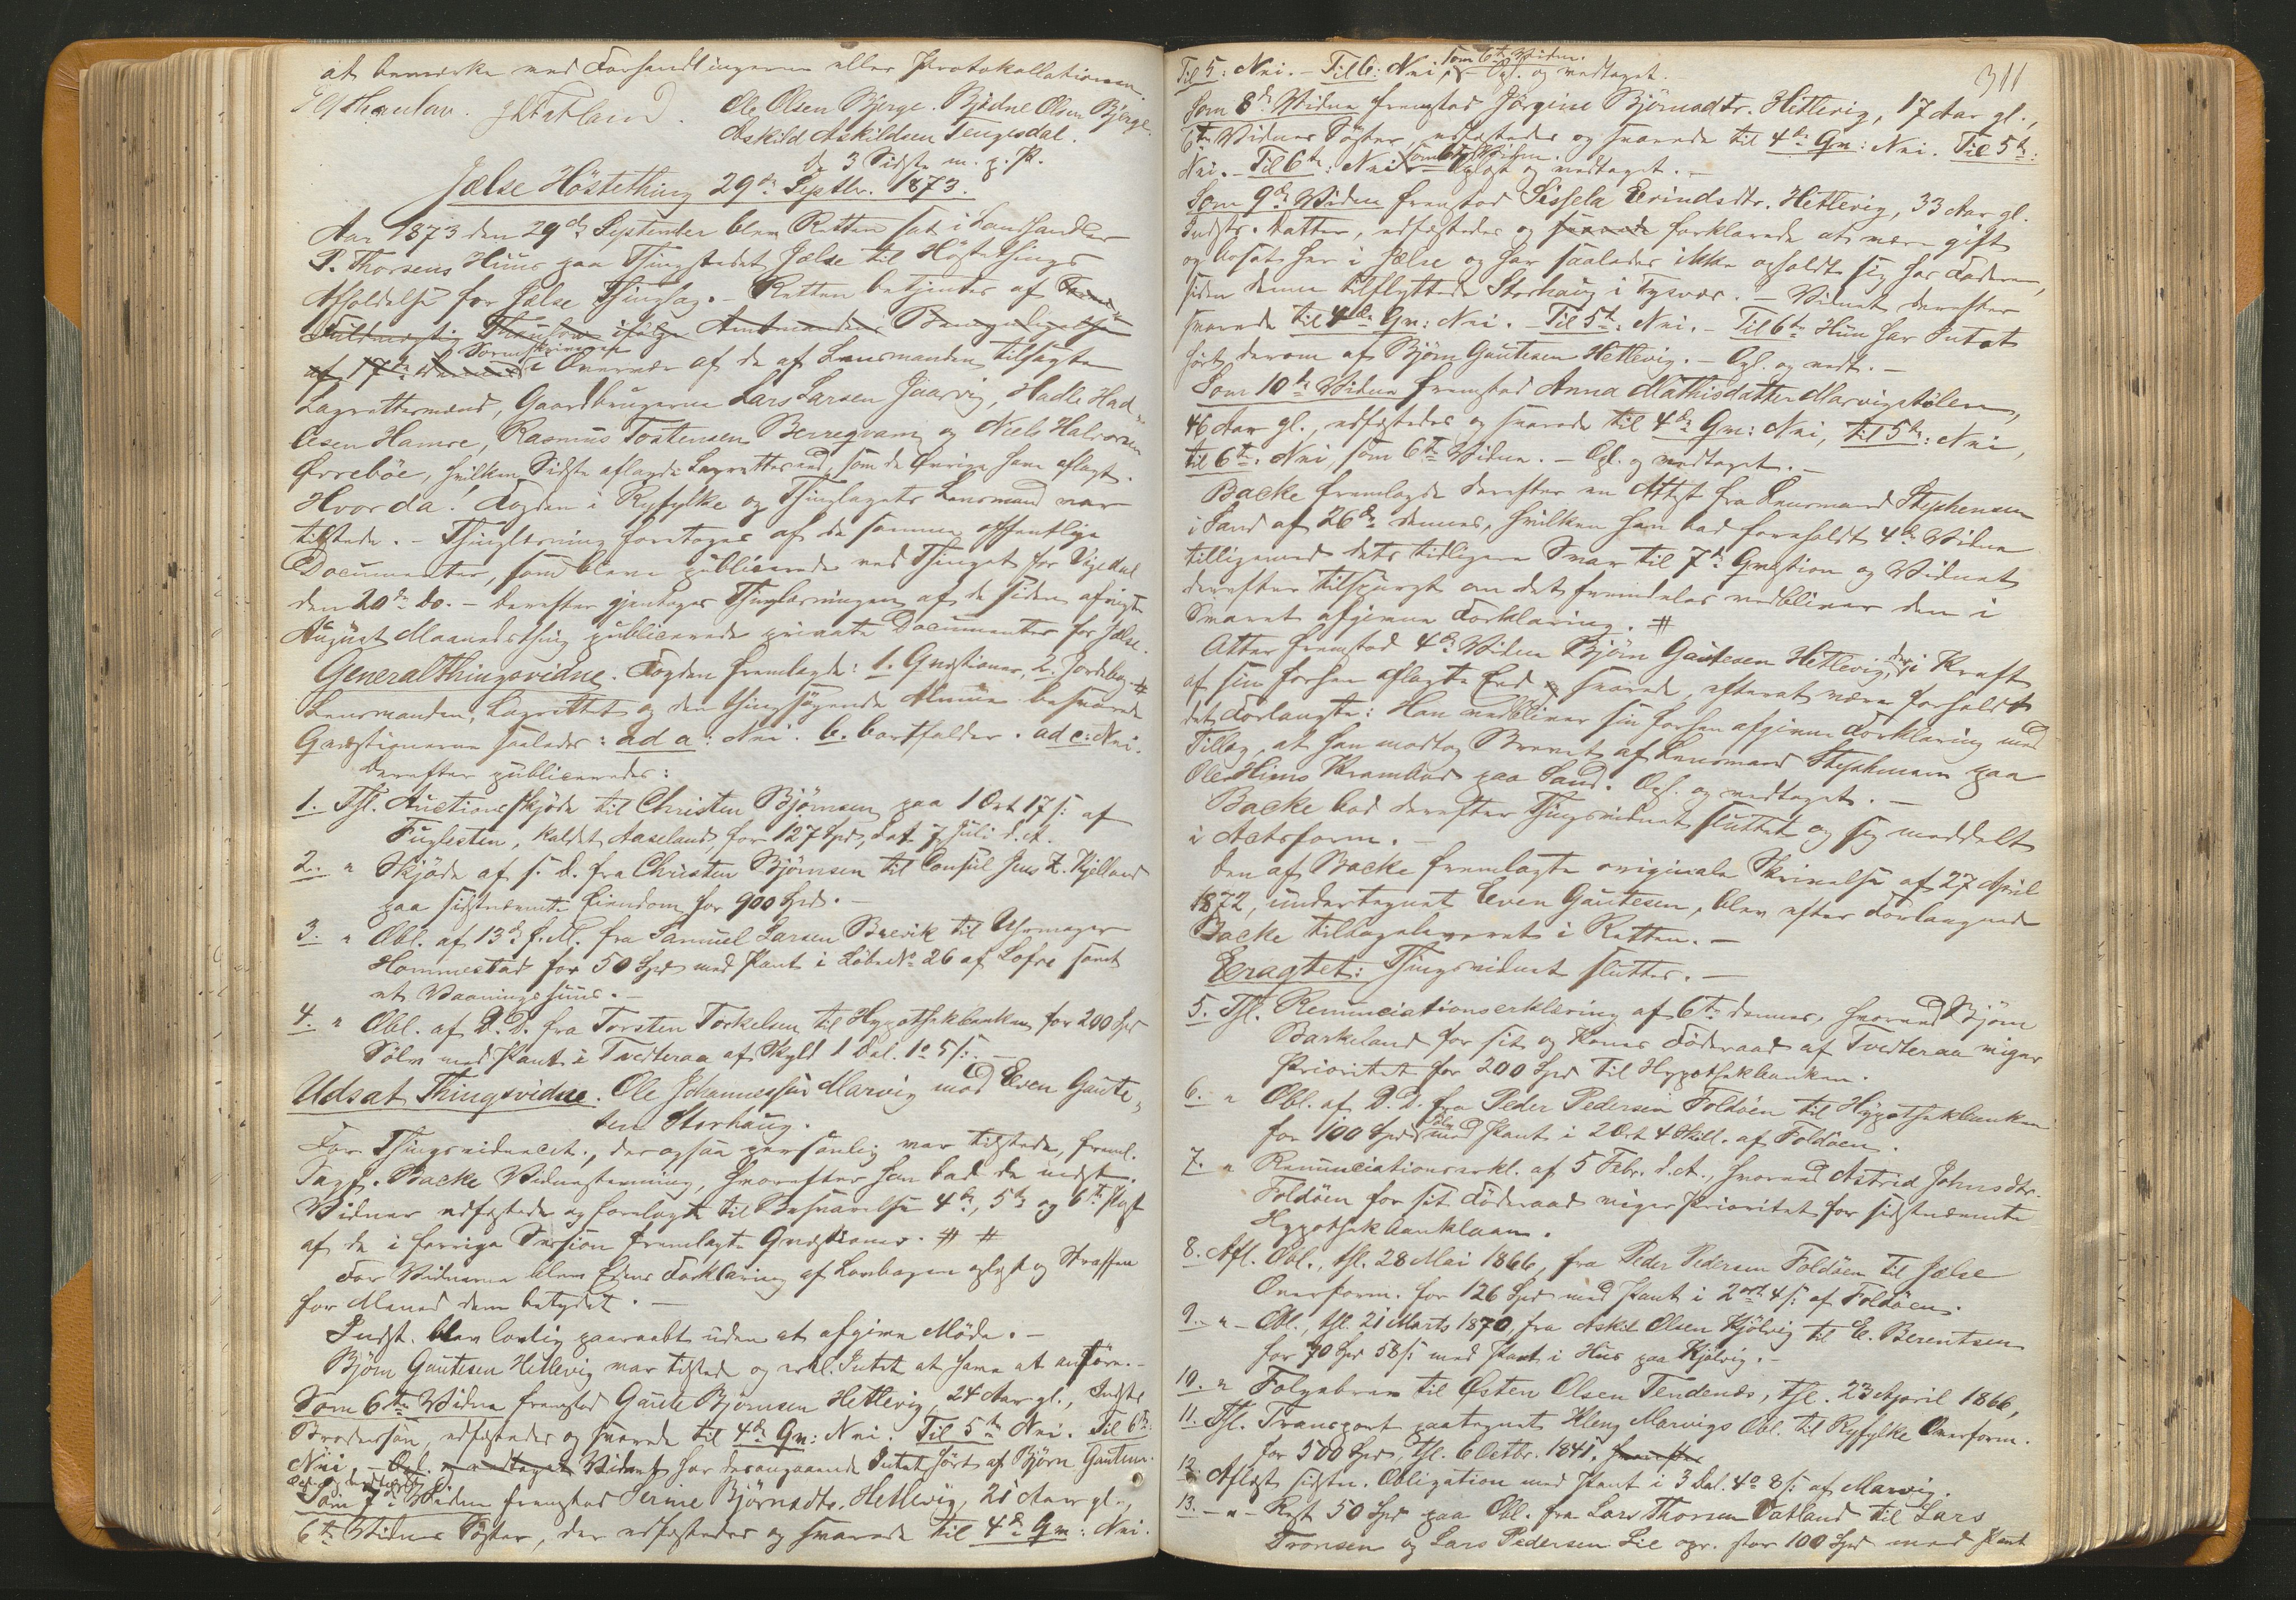 at bemærke ved Forhandlingerne eller Protokollationen.
JLFatland. Ole Olsen Bjerge. Bjødne Olsen Bjerge.
Askild Askildsen Tengesdal.
de 3 Sidste m. p. P.
Jælse Høstething 29de Septbr. 1873.
Aar 1873 den 29de September blev Retten sat i Landhandler
P. Thorsens Huus paa Thingstedet Jælse til Høstethings
Afholdelse for Jælse Thinglag. – Retten betjentes af
Fuldmægtig Thaulow ifølge Amtmandens Bemyndigelse
af 17de Sorenskriveren i Overvær af de af Lensmanden tilsagte
Lagrettemænd, Gaardbrugerne Lars Larsen Jaarvig, Hadle Had-
lesen Hamre, Rasmus Tostensen Berreqvam og Niels Halvorsen
Ørrebøe, hvilken Sidste aflagde Lagretteseed, som de Øvrige have aflagt.
Hvorda! Fogden i Ryfylke og Thinglagets Lensmand var
tilstede. – Thinglæsning foretoges af de samme offentlige
Documenter, som bleve publicerede ved Thinget for Vigedal
den 20de ds. – Derefter gjentoges Thinglæsningen af de siden afvigte
August Maanedsthing publicerede private Documenter for Jælse.
Generalthingsvidne. Fogden fremlagde: 1. Qvæstioner, 2. Jordebog #
Lensmanden, Lagrettet og den thingsøgende Almue besvarede
Qvæstionerne saaledes: ad a: Nei. b. bortfalder. ad c: Nei.
Derefter publiceredes:
1. Thl. Auctionsskjøde til Christen Bjørnsen paa 1 Ort 17 s: af
Fuglesten, kaldet Aaseland for 127 Spd, dat. 7 Juli d. A.
2. " Skjøde af s. D. fra Christen Bjørnsen til Consul Jens Z. Kielland
paa sidstnævnte Eiendom for 900 Spd. –
3. " Obl. af 13de f. M. fra Samuel Larsen Brevik til Uhrmager
Hommestad for 50 Spd med Pant i LøbeNo 26 af Lofre samt
et Vaaningshuus. –
4. " Obl. af D. D. fra Torsten Torkelsen til Hypothekbanken for 200 Spd
Sølv med Pant i Tvedteraa af Skyld 1 Dal. 1o 5 s: –
Udsat Thingsvidne. Ole Johannessen Marvig mod Even Gaute-
sen Storhaug.
For Thingsvidnecit., der ogsaa personlig var tilstede, freml.
Sagf. Backe Vidnestevning, hvorefter han bad de indst.
Vidner edfæstede og forelagt til Besvarelse 4de, 5te og 6te Post
af de i forrige Session fremlagte Qvæstioner. # #
For Vidnerne blev Edens Forklaring af Lovbogen oplæst og Straffen
for Meneed dem betydet. –
Indst. blev lovlig paaraabt uden at afgive Møde. –
Bjørn Gautesen Hetlevig var tilstede og erkl. Intet at have at anføre. –
Som 6te Vidne fremstod Gaute Bjørnsen Hetlevig, 24 Aar gl., Indsts
Brodersøn, edfæstedes og svarede til 4de Qv: Nei. Til 5te Nei. Til 6te:
Nei, – Opl. og vedtaget Vidnet har desangaaende Intet hørt af Bjørn Gautesen.
Opl. og vedtaget
Som 7de Vidne fremstod Serine Bjørnsdtr. Hetlevig, 21 Aar gl.,
6te Vidnes Søster, der edfæstedes og svarede til 4de Qv: Nei.
311
Til 5: Nei. – Til 6: Nei, som 6te Vidne. – Opl. og vedtaget.
Som 8de Vidne fremstod Jørgine Bjørnsdtr. Hetlevig, 17 Aar gl.,
6te Vidnes Søster, edfæstedes og svarede til 4de Qv: Nei. Til 5te:
Nei. – Til 6te: Nei som 6te Vidne. – Oplæst og vedtaget. –
Som 9de Vidne fremstod Sissela Evindsdtr. Hetlevig, 33 Aar gl.
Indsts. Datter, edfæstedes og svarede forklarede at være gift
og bosat her i Jælse og har saaledes ikke opholdt sig hos Faderen,
siden denne tilflyttede Storhaug i Tysvær. – Vidnet derefter
svarede til 4de Qv: Nei. – Til 5te: Nei. – Til 6te Hun har Intet
hørt derom af Bjørn Gautesen Hetlevig. – Opl. og vedt. –
Som 10de Vidne fremstod Anna Mathisdatter Marvigstølen,
46 Aar gl., edfæstedes og svarede til 4de Qv: Nei, til 5te: Nei,
til 6te: Nei, som 6te Vidne. – Opl. og vedtaget. –
Backe fremlagde derefter en Attest fra Lensmand Stephensen
i Sand af 26de dennes, hvilken han bad foreholdt 4de Vidne
tilligemed dets tidligere Svar til 7de Qvæstion og Vidnet
derefter tilspurgt om det fremdeles vedbliver den i
Svaret afgivne Forklaring. #
Atter fremstod 4de Vidne Bjørn Gautesen Hetlevig, der i Kraft
af sin forhen aflagte Eed svarede, efterat være foreholdt
det Forlangte: Han vedbliver sin forhen afgivne Forklaring med
Tillæg, at han modtog Brevet af Lensmand Stephensen paa
Ole Hiims Krambod paa Sand. Opl. og vedtaget. –
Backe bad derefter Thingsvidnet sluttet og sig meddelt
i Actsform. –
Den af Backe fremlagte originale Skrivelse af 27 April
1872, undertegnet Even Gautesen, blev efter Forlangende
Backe tilbageleveret i Retten. –
Eragtet: Thingsvidnet sluttes. –
5. Thl. Renunciationserklæring af 6te dennes, hvorved Bjørn
Barkeland for sit og Kones Føderaad af Tvedteraa viger
Prioritet for 200 Spd til Hypothekbanken.
6. " Obl. af D. D. fra Peder Pedersen Foldøen til Hypothekbanken
for 100 Spd Sølv med Pant i 2 Ort 4 Skill. af Foldøen.
7. " Renunciationserkl. af 5 Febr. d. A., hvorved Astrid Johnsdtr.
Foldøen for sit Føderaad viger Prioritet for sidstnævnte
Hypothekbanklaan.
8. Afl. Obl., thl. 28 Mai 1866, fra Peder Pedersen Foldøen til Jælse
Overform. for 126 Spd med Pant i 2 ort 4 s: af Foldøen.
9. " – Obl., thl. 21 Marts 1870, fra Askil Olsen Kjølvig til E. Berentsen
for 70 Spd 58 s: med Pant i Hus paa Kjølvig. –
10. " Folgebrev til Østen Olsen Tendenes, thl. 23 April 1866,
11. Thl. Transport paategnet Kleng Marvigs Obl. til Ryfylke Overform.
for 500 Spd, thl. 6 Octbr. 1841.
12. Aflæst sidstn. Obligation med Pant i 3 Dal. 4o 8 s: af Marvig.
13. – " – Rest 50 Spd paa Obl. fra Lars Thorsen Vatland til Lars
Tronsen og Lars Pedersen Lie opr. stor 100 Spd med Pant